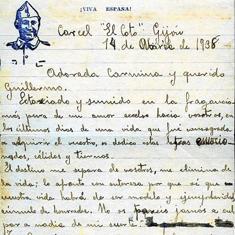 ¡VIVA ESPAÑA!
Carcel "El Coto" Gijón
14 de Abril de 1938
Adorada Carmina y querido
Guillermo.
y sumido en la fragancia
más pura de un amor excelso hacia vosotros, en
los últimos días de una vida que fué consagrada
adquirir el vuestro, os dedico estas
nados, cálidos y tiernos.
El destino me separa de vosotros, me elimina de
la vida; lo afronto con entereza por que sé que
vuestra vida habrá de ser modelo y ejemplaridad
cúmulo de honradez. No os jamás a
por a nadie de mi